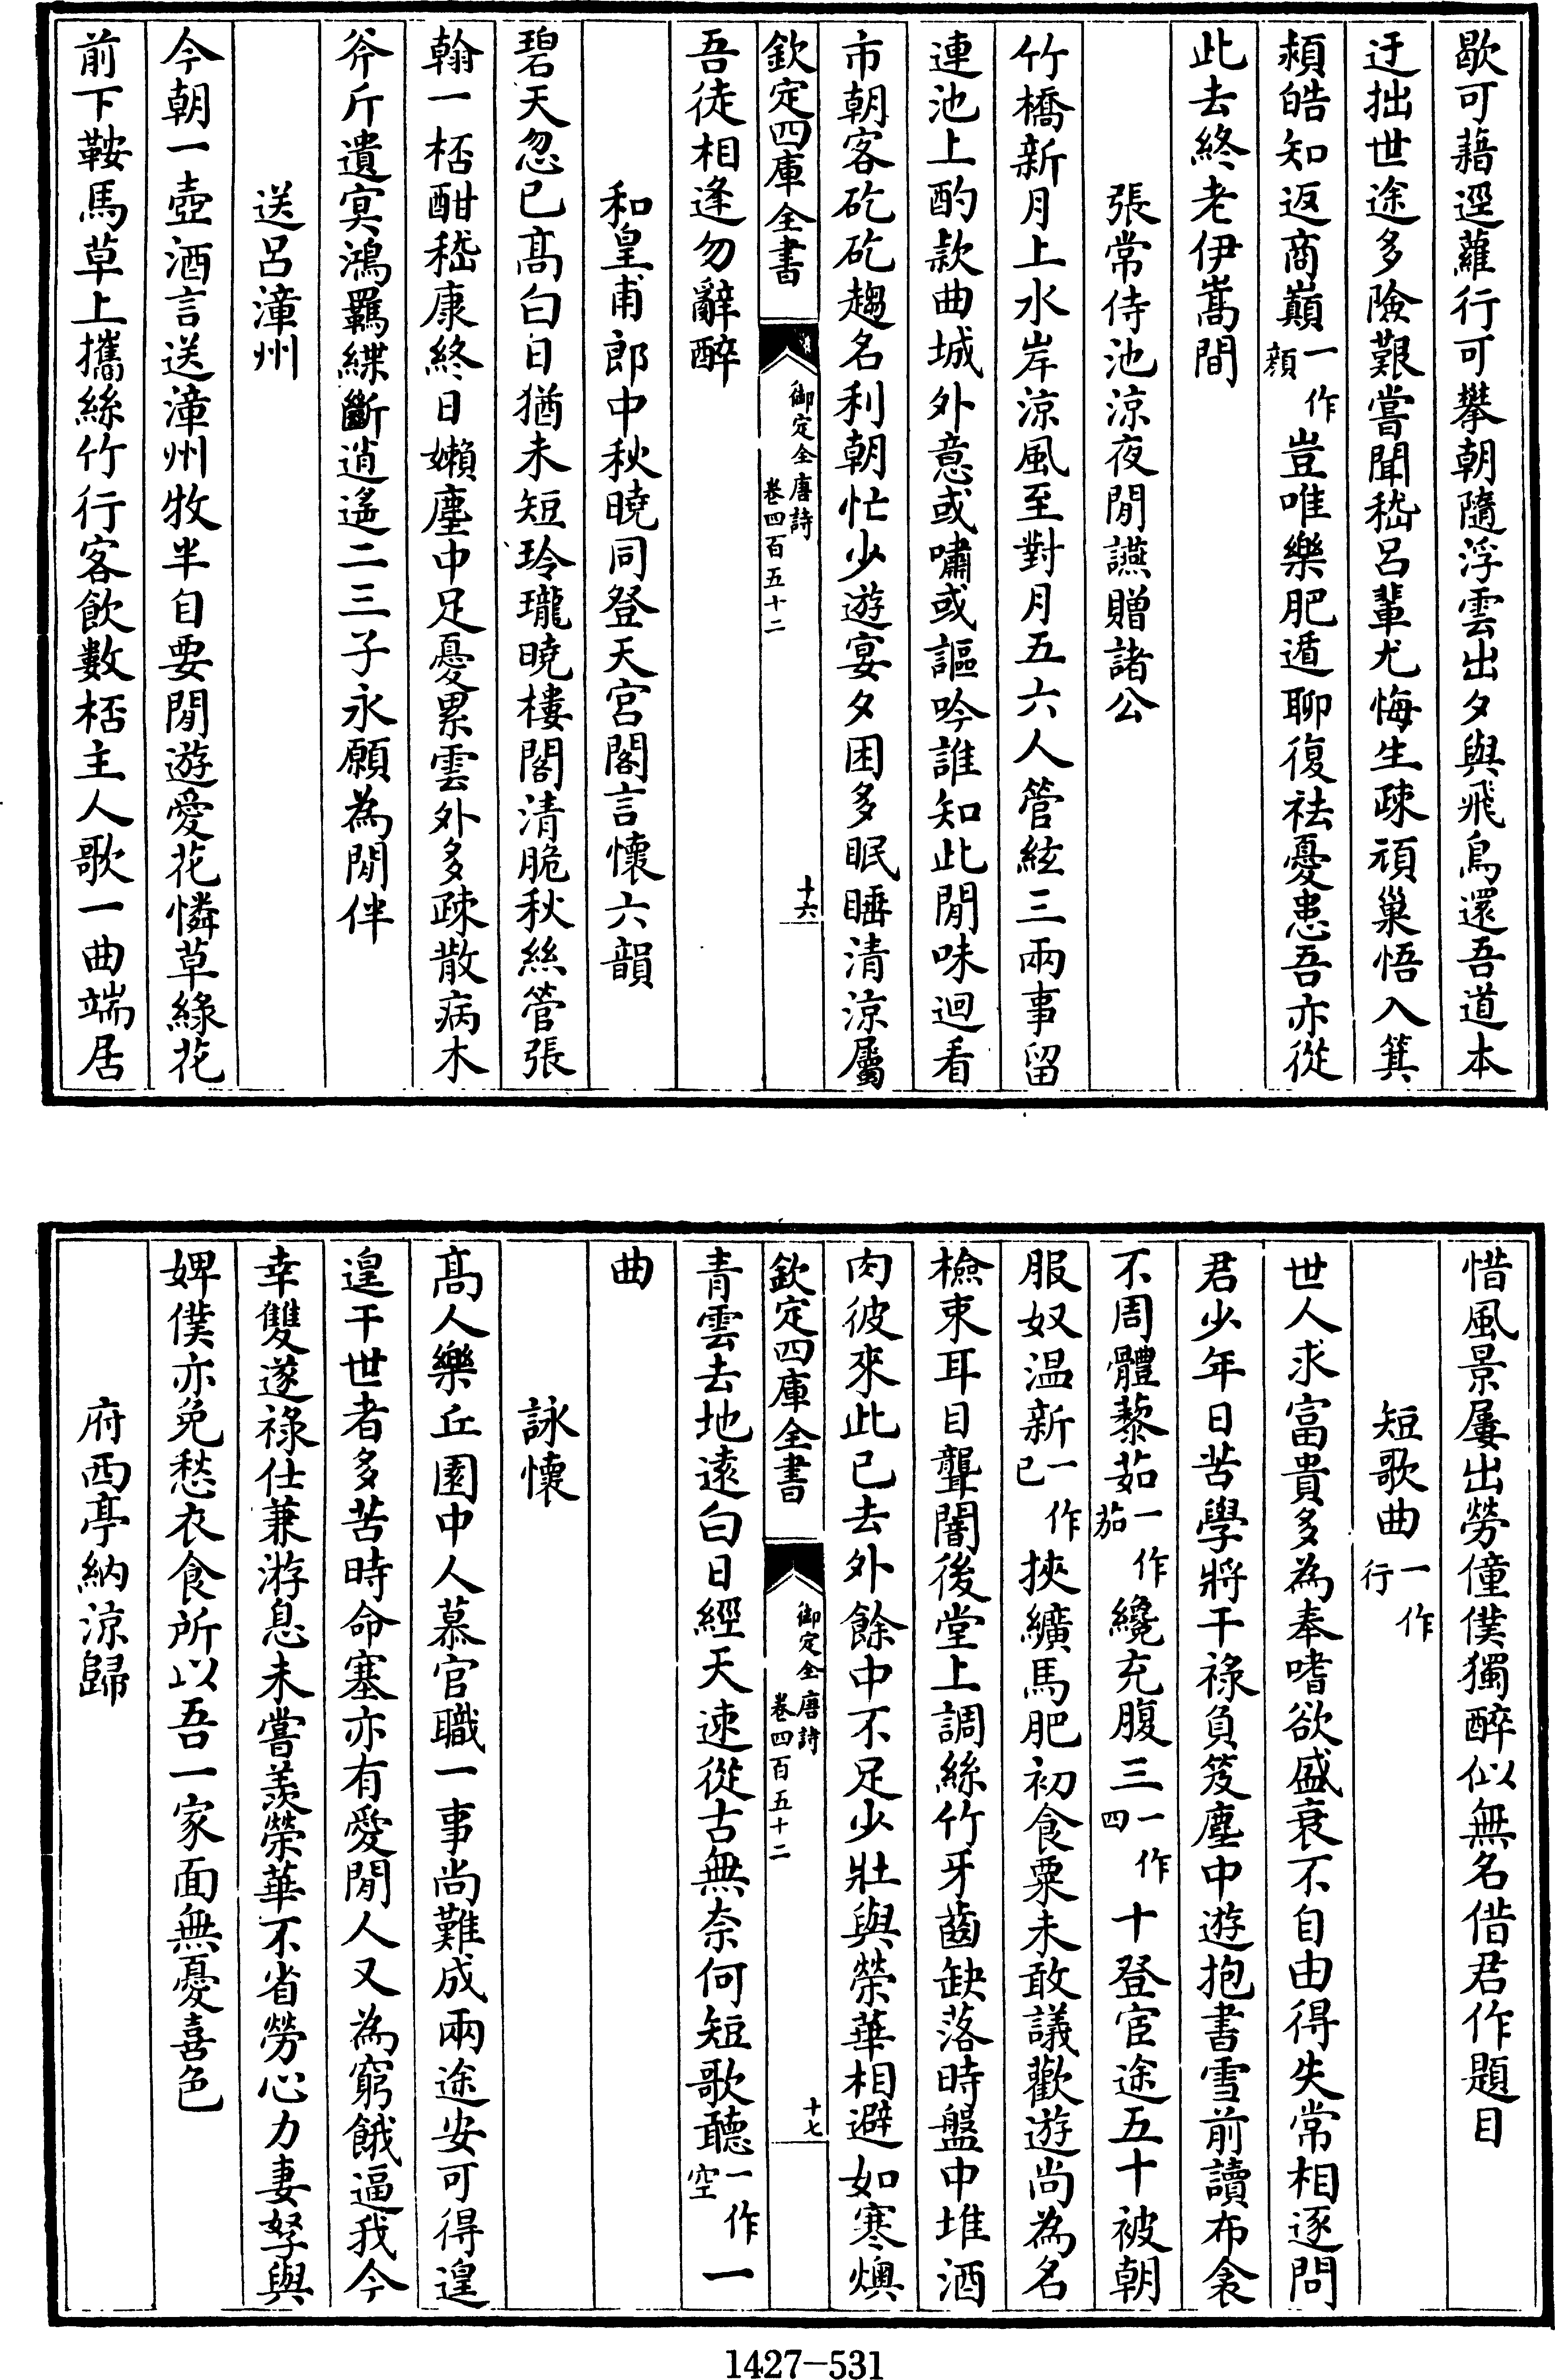 歇可藉逕蘿行可攀朝隨浮雲出夕與飛鳥還吾道本
迂拙世途多險艱嘗聞嵇呂輩尤悔生疎頑巢悟入箕
頰皓知返商巔一作顔豈唯樂肥遁聊復祛憂患吾亦從
此去終老伊嵩間
張常侍池涼夜閒讌贈諸公
竹橋新月上水岸涼風至對月五六人管絃三兩事留
連池上酌款曲城外意或嘯或謳吟誰知此閒味迴看
市朝客矻矻趨名利朝忙少遊宴夕困多眠睡清涼屬
欽定四庫全書 御定全唐詩卷四百五十二 十六
吾徒相逢勿辭醉
和皇甫郎中秋曉同登天宮閣言懷六韻
碧天忽已高白日猶未短玲瓏曉樓閣清脆秋絲管張
翰一桮酣嵇康終日嬾塵中足憂累雲外多疎散病木
斧斤遺冥鴻羈緤斷逍遙二三子永願為閒伴
送呂漳州
今朝一壺酒言送漳州牧半自要閒遊愛花憐草綠花
前下鞍馬草上攜絲竹行客飲數桮主人歌一曲端居
惜風景屢出勞僮僕獨醉似無名借君作題目
短歌曲一作行
世人求富貴多為奉嗜欲盛衰不自由得失常相逐問
君少年日苦學將干祿負笈塵中遊抱書雪前讀布衾
不周體藜茹一作茄纔充腹三一作四十登宦途五十被朝
服奴温新一作已挾纊馬肥初食粟未敢議歡遊尚為名
檢束耳目聾闇後堂上調絲竹牙齒缺落時盤中堆酒
肉彼來此已去外餘中不足少壯與榮華相避如寒燠
欽定四庫全書 御定全唐詩卷四百五十二 十七
青雲去地遠白日經天速從古無奈何短歌聽一作空一
曲
詠懷
高人樂丘園中人慕官職一事尚難成兩途安可得遑
遑干世者多苦時命塞亦有愛閒人又為窮餓逼我今
幸雙遂祿仕兼游息未嘗羨榮華不省勞心力妻孥與
婢僕亦免愁衣食所以吾一家面無憂喜色
府西亭納涼歸
1427-531